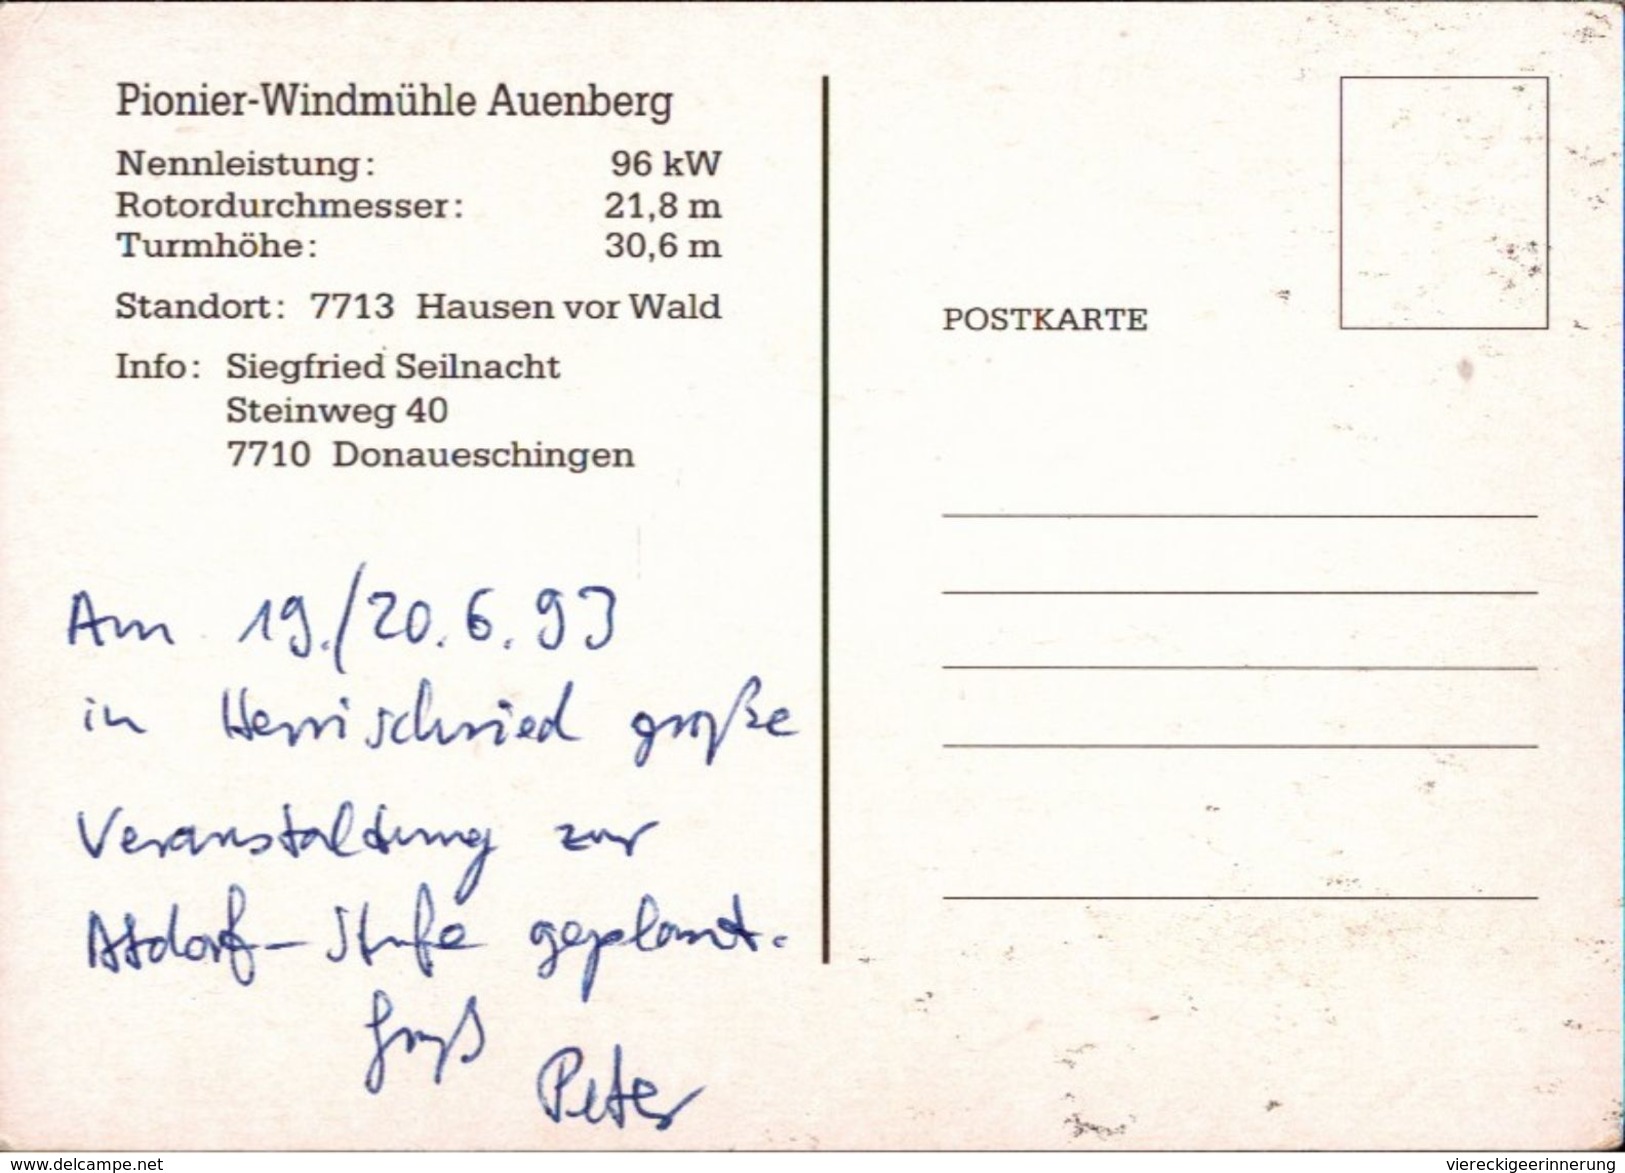 Pionier-Windmühle Auenberg
Nennleistung: 96 kW
Rotordurchmesser: 21,8 m
Turmhöhe: 30,6 m
Standort: 7713 Hausen vor Wald
Info: Siegfried Seilnacht
Steinweg 40
7710 Donaueschingen
Am 19./20.6.93
in Herrischried große
Veranstaltung zur
Atdorf-Stufe geplant.
Gruß
Peter
POSTKARTE
www.delcampe.net
viereckigeerinnerung